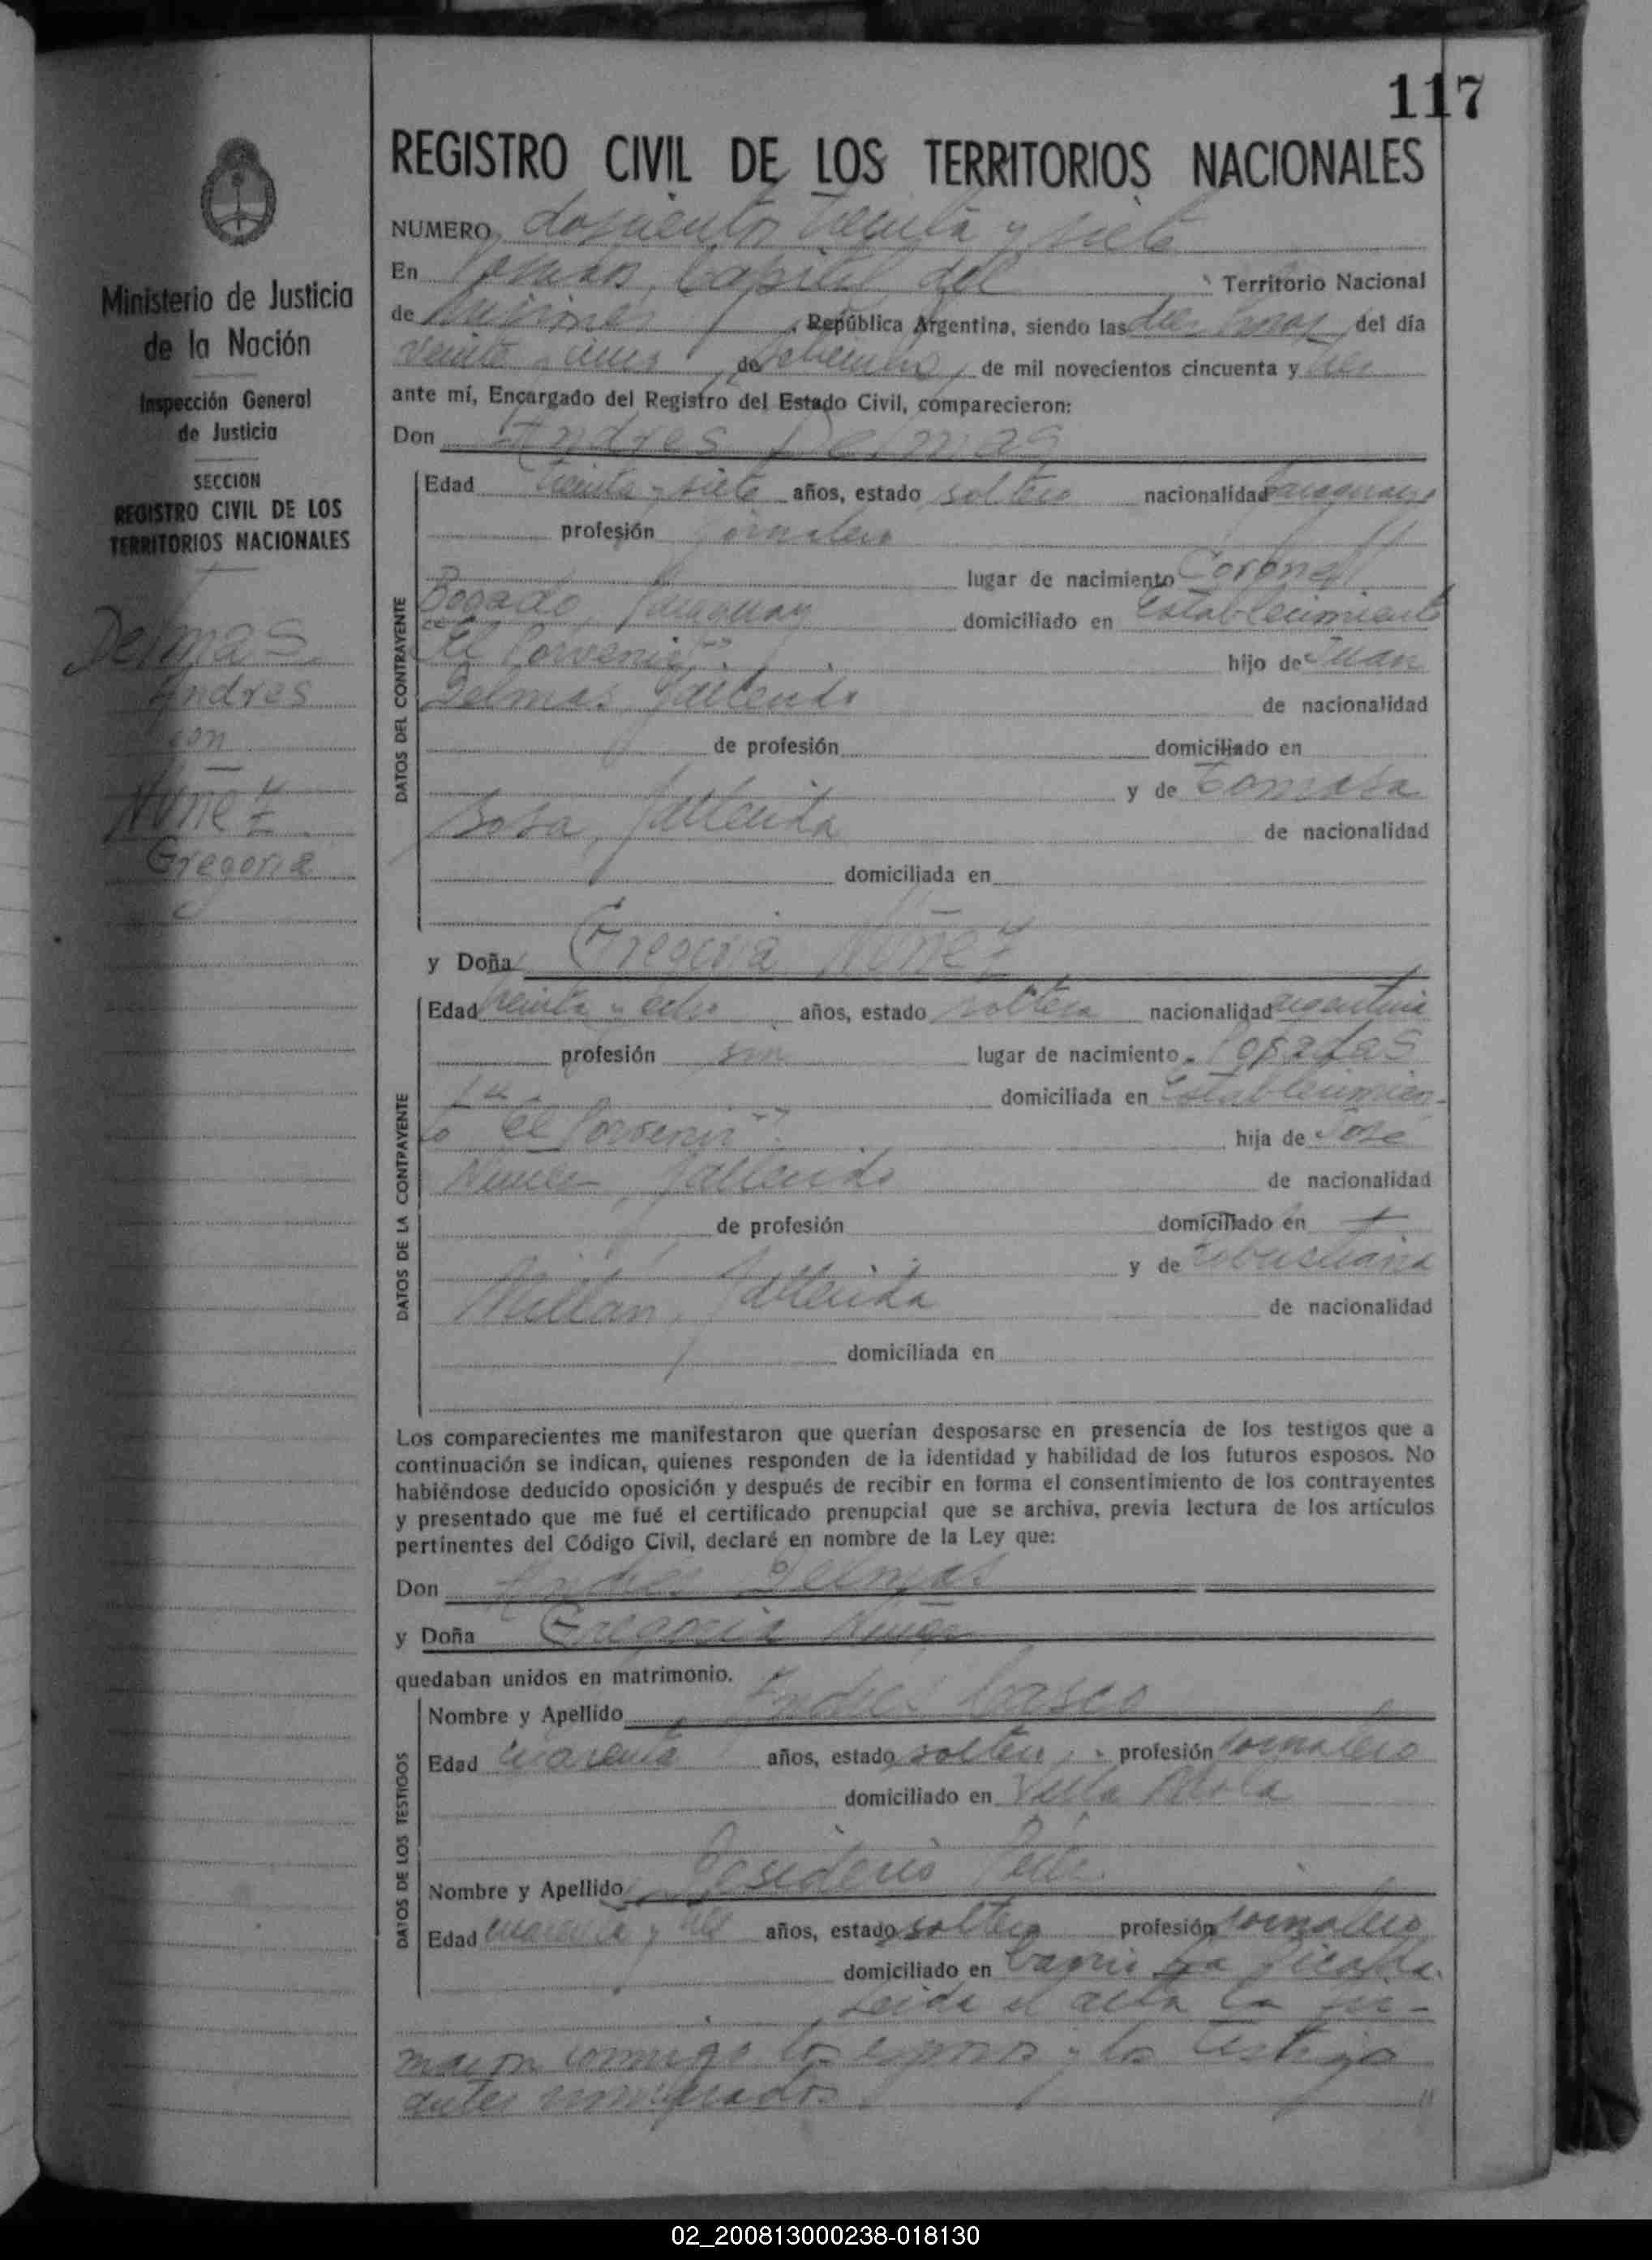 117
REGISTRO CIVIL DE LOS TERRITORIOS NACIONALES
Ministerio de Justicia
de la Nación
Inspección General
de Justicia
SECCION
REGISTRO CIVIL DE LOS
TERRITORIOS NACIONALES
Delmas
Andres
con
Núñez
Gregoria
NUMERO doscientos treinta y siete
En Posadas, Capital del Territorio Nacional
de Misiones, República Argentina, siendo las diez horas del día
veinte y uno de Setiembre de mil novecientos cincuenta y tres
ante mí, Encargado del Registro del Estado Civil, comparecieron:
Don Andres Delmas
DATOS DEL CONTRAYENTE
Edad treinta y siete años, estado soltero nacionalidad paraguaya
profesión jornalero
lugar de nacimiento Coronel
Bogado, Paraguay domiciliado en Establecimiento
"El Porvenir". hijo de Juan
Delmas, fallecido de nacionalidad
de profesión domiciliado en
y de Tomasa
Sosa, fallecida de nacionalidad
domiciliada en
y Doña Gregoria Núñez
DATOS DE LA CONTRAYENTE
Edad treinta y ocho años, estado soltera nacionalidad argentina
profesión sin lugar de nacimiento Posadas
domiciliada en Establecimien-
to "El Porvenir". hija de José
Nuñez, fallecido de nacionalidad
de profesión domiciliado en
y de Robustiana
Millan, fallecida de nacionalidad
domiciliada en
Los comparecientes me manifestaron que querían desposarse en presencia de los testigos que a
continuación se indican, quienes responden de la identidad y habilidad de los futuros esposos. No
habiéndose deducido oposición y después de recibir en forma el consentimiento de los contrayentes
y presentado que me fué el certificado prenupcial que se archiva, previa lectura de los artículos
pertinentes del Código Civil, declaré en nombre de la Ley que:
Don Andres Delmas
y Doña Gregoria Nuñez
quedaban unidos en matrimonio.
DATOS DE LOS TESTIGOS
Nombre y Apellido Andres Casco
Edad cuarenta años, estado soltero, profesión jornalero
domiciliado en Villa Mola
Nombre y Apellido Desiderio
Edad cuarenta y años, estado soltero profesión jornalero
domiciliado en barrio La Picada.
Leida el acta la fir-
maron conmigo los esposos y los testigos
antes nombrados
02_200813000238-018130